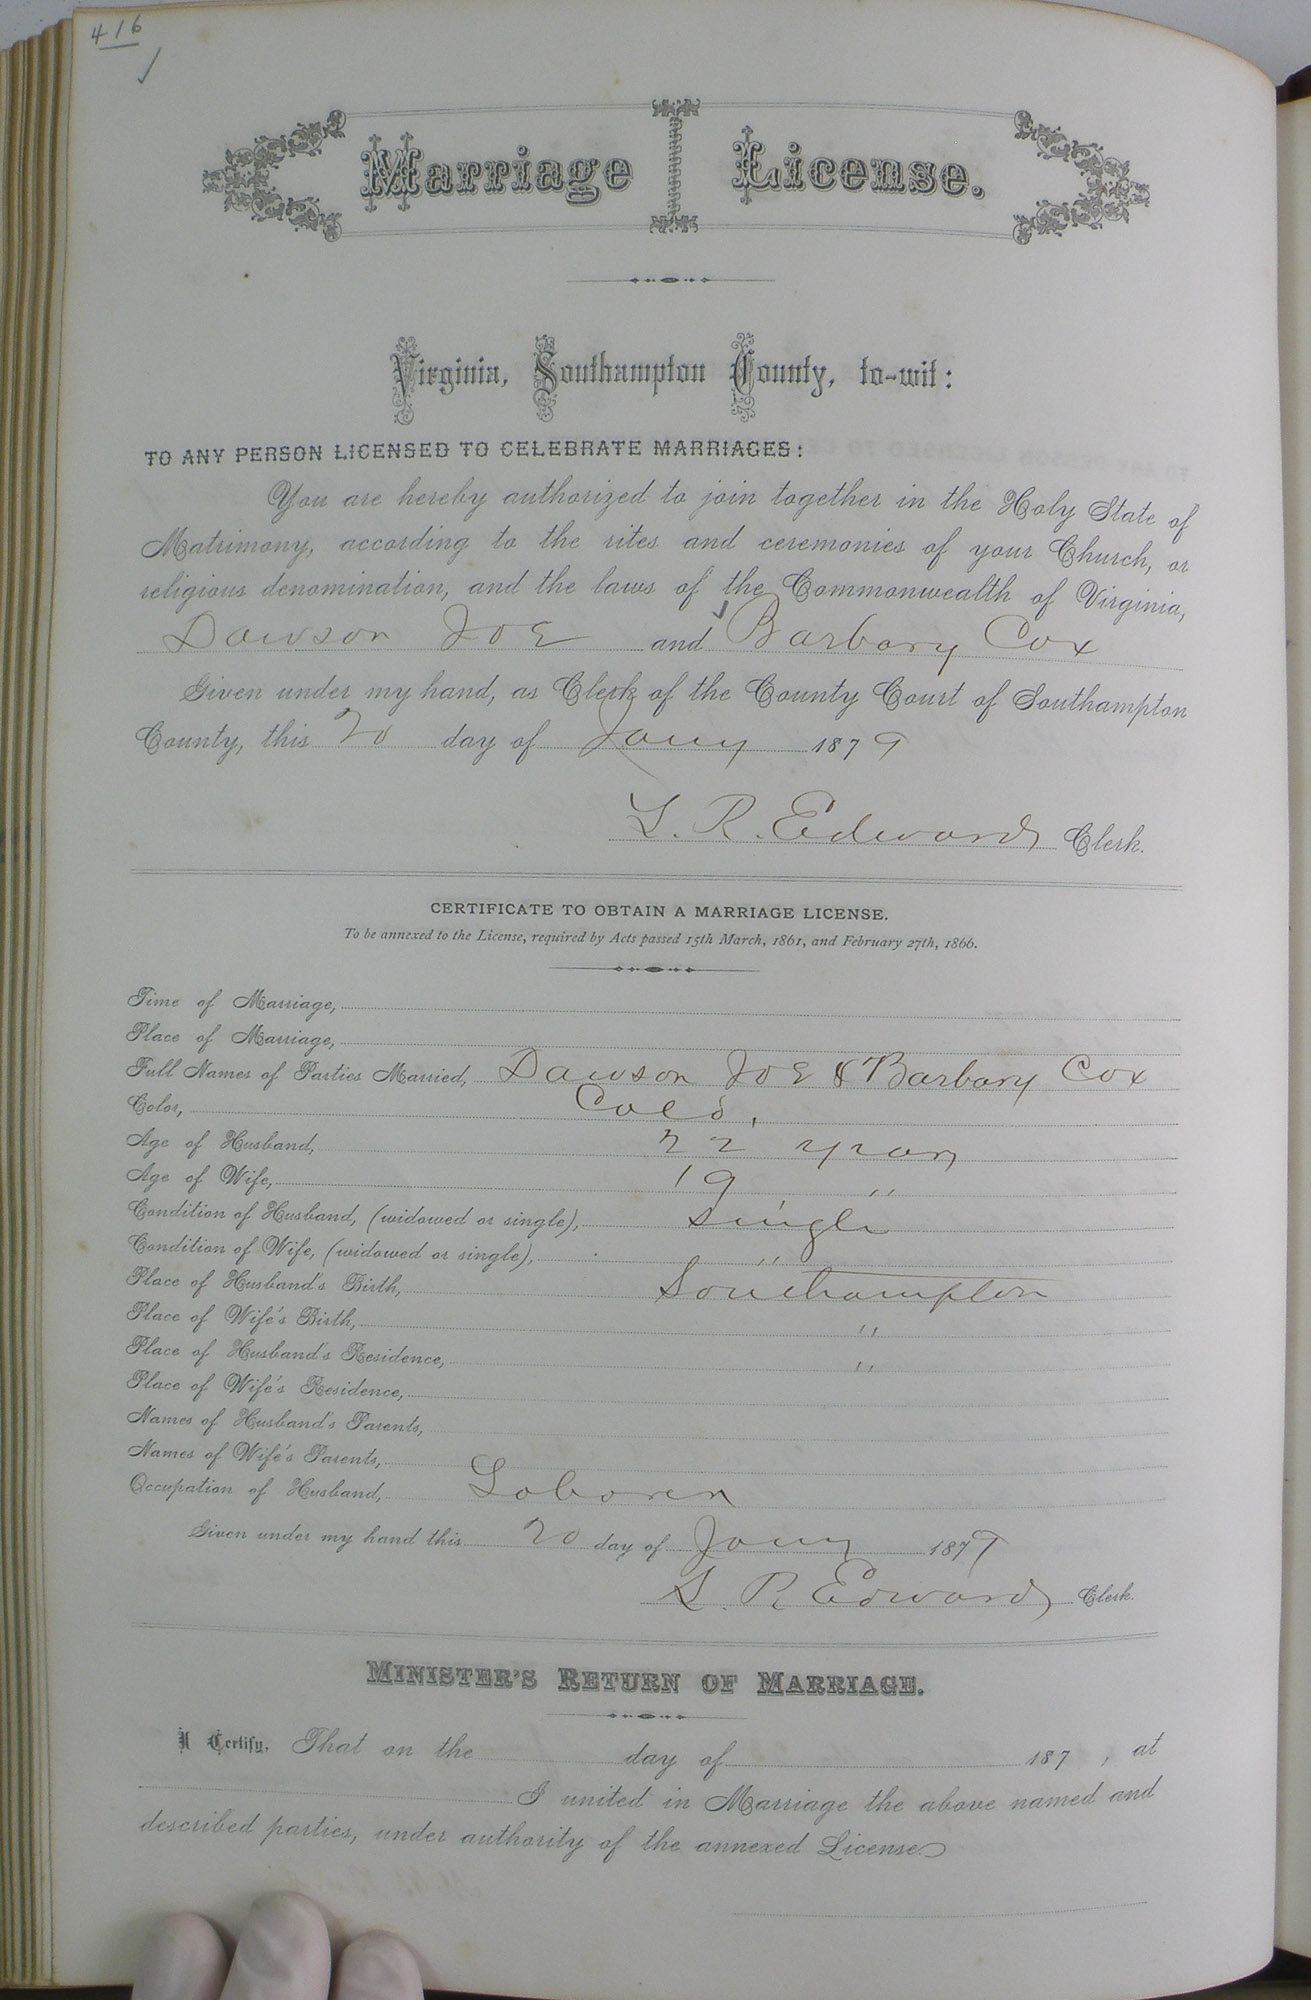 416
Marriage License.
Virginia, Southampton County, to-wit:
TO ANY PERSON LICENSED TO CELEBRATE MARRIAGES:
You are hereby authorized to join together in the Holy State of
Matrimony, according to the rites and ceremonies of your Church, or
religious denomination, and the laws of the Commonwealth of Virginia,
Dawson Joe and Barbary Cox
Given under my hand, as Clerk of the County Court of Southampton
County, this 20 day of Jany 1879
L. R. Edwards Clerk.
CERTIFICATE TO OBTAIN A MARRIAGE LICENSE.
To be annexed to the License, required by Acts passed 15th March, 1861, and February 27th, 1866.
Time of Marriage,
Place of Marriage,
Full Names of Parties Married, Dawson Joe & Barbary Cox
Color, Cold.
Age of Husband, 22 years
Age of Wife, 19 "
Condition of Husband, (widowed or single), Single
Condition of Wife, (widowed or single), "
Place of Husband's Birth, Southampton
Place of Wife's Birth, "
Place of Husband's Residence, "
Place of Wife's Residence,
Names of Husband's Parents,
Names of Wife's Parents,
Occupation of Husband, Laborer
Given under my hand this 20 day of Jany 1879
L. R. Edwards Clerk.
MINISTER'S RETURN OF MARRIAGE.
I Certify, That on the day of 187 , at
I united in Marriage the above named and
described parties, under authority of the annexed License.